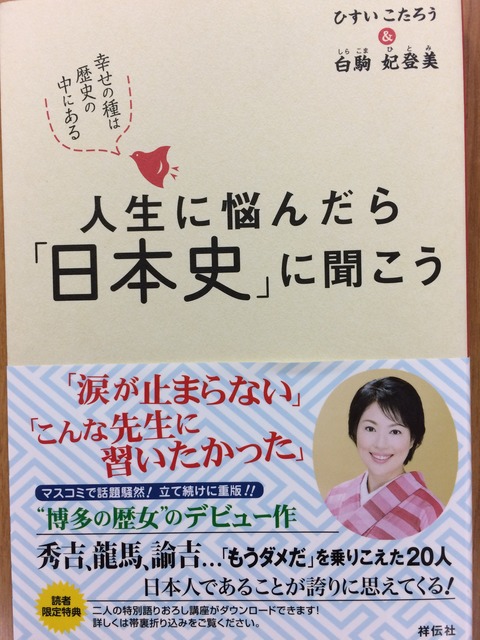 ひすい こたろう
&
しら こま ひ と み
白駒 妃登美
幸せの種は
歴史の
中にある
人生に悩んだら
「日本史」に聞こう
「涙が止まらない」
「こんな先生に
習いたかった」
マスコミで話題騒然！ 立て続けに重版！！
“博多の歴女”のデビュー作
秀吉、龍馬、諭吉…「もうダメだ」を乗りこえた20人
日本人であることが誇りに思えてくる！
読者
限定特典
二人の特別語りおろし講座がダウンロードできます！
詳しくは帯裏折り込みをご覧ください。
祥伝社